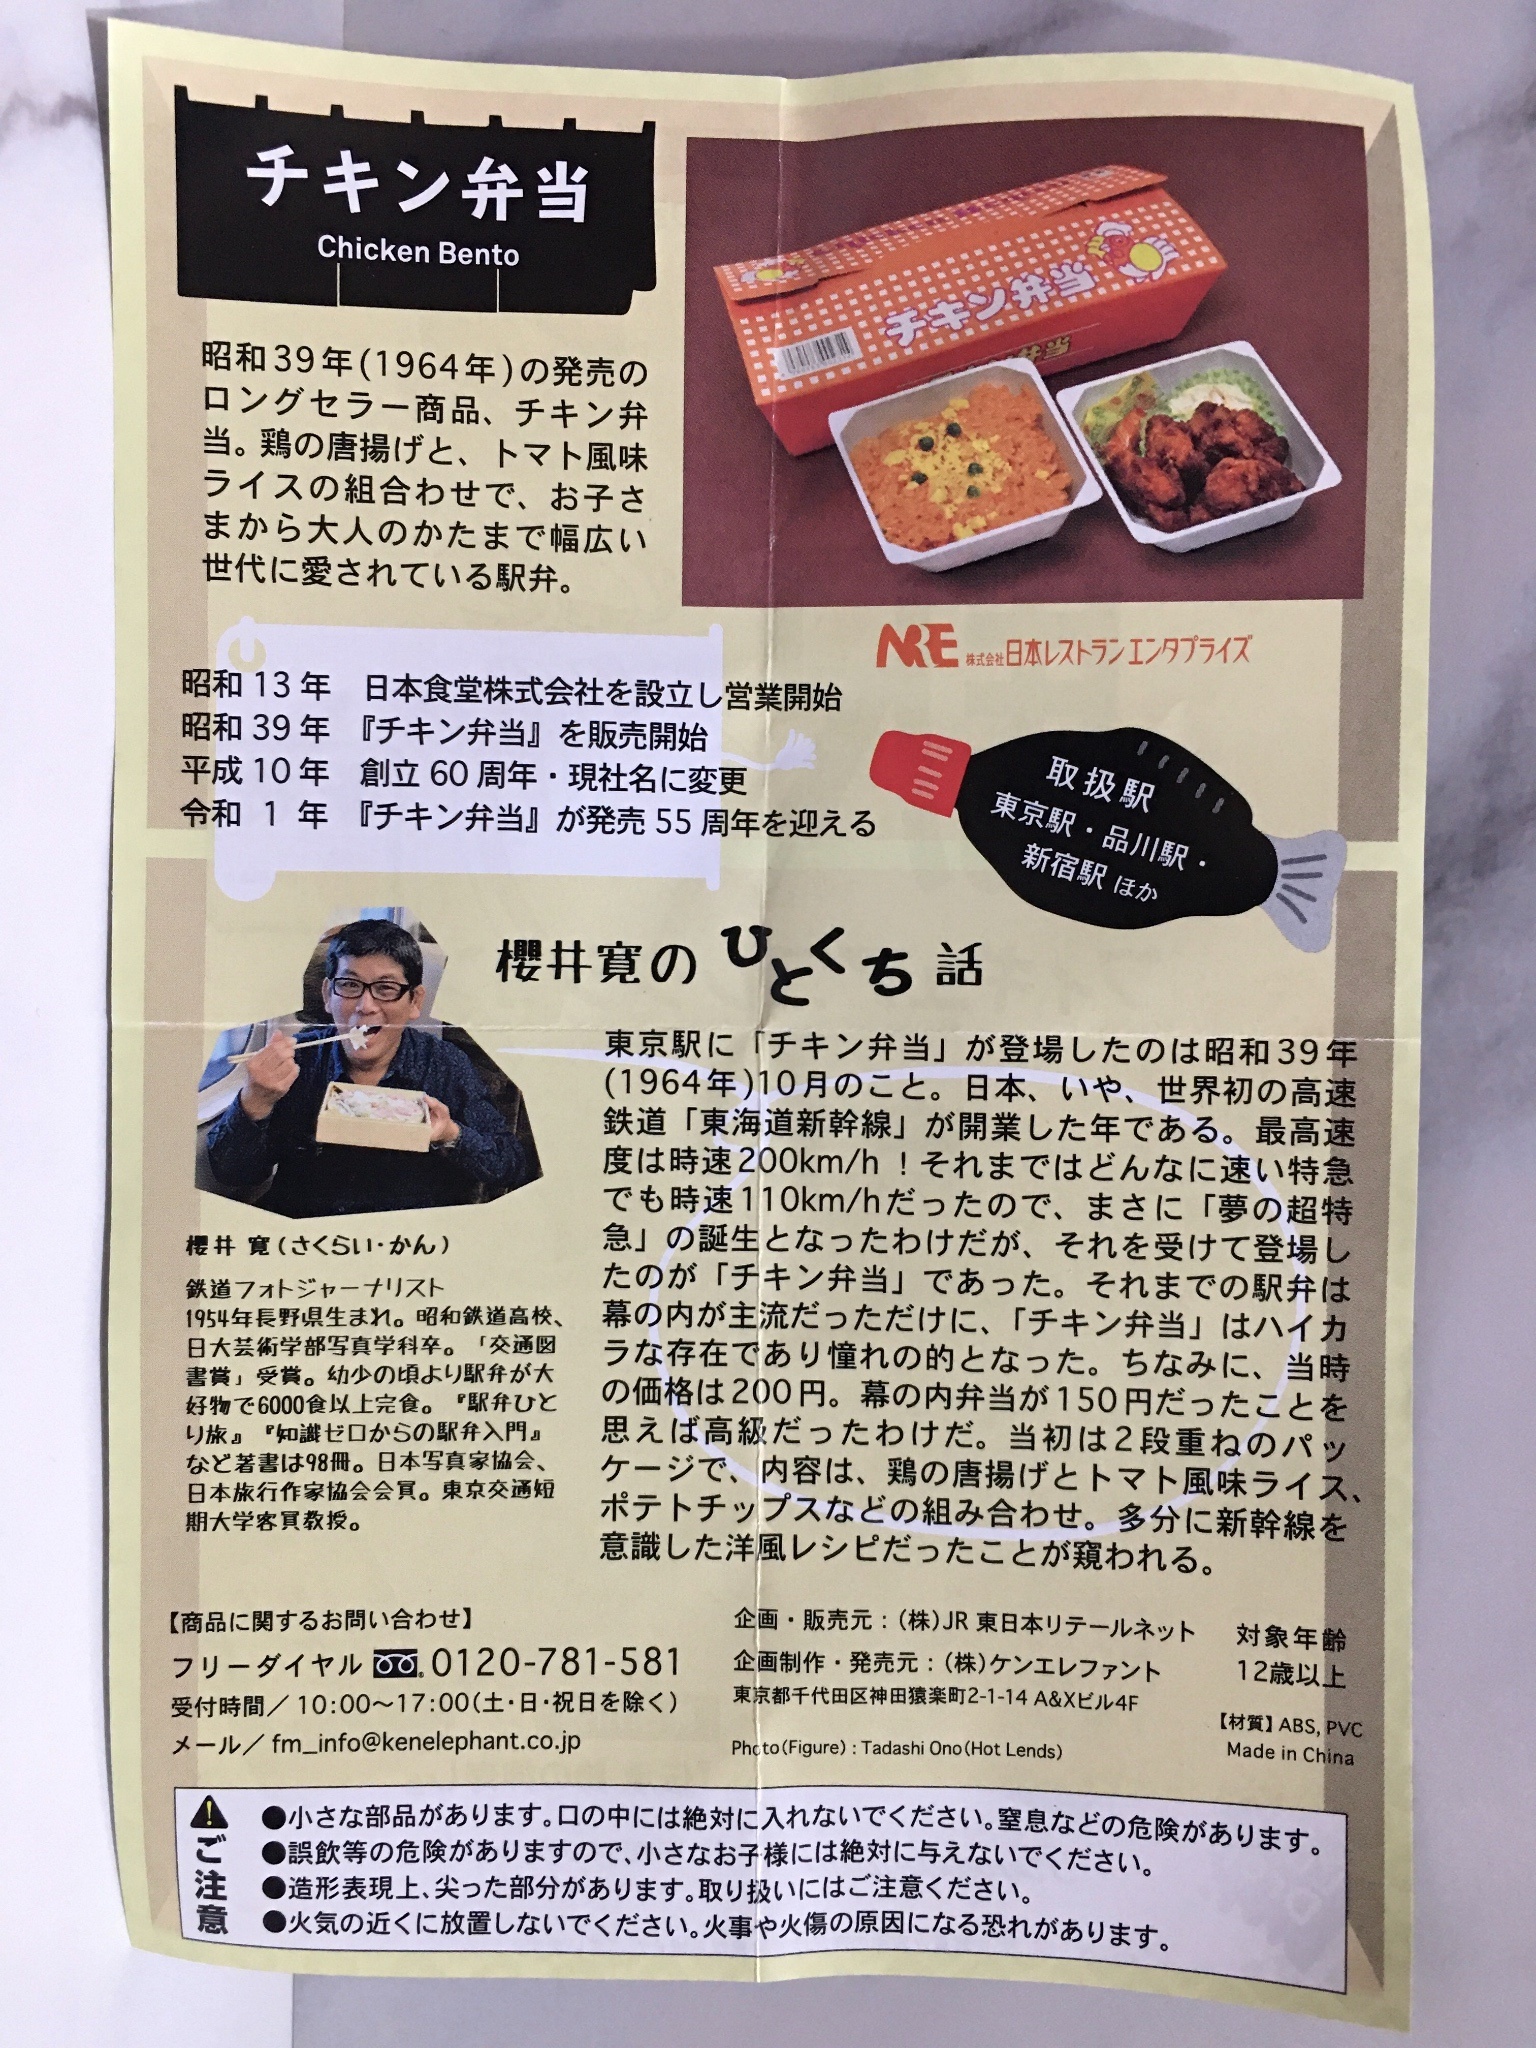 チキン弁当
Chicken Bento
チキン弁当
昭和39年(1964年)の発売の
ロングセラー商品、チキン弁
当。鶏の唐揚げと、トマト風味
ライスの組合わせで、お子さ
まから大人のかたまで幅広い
世代に愛されている駅弁。
NRE 株式会社日本レストランエンタプライズ
昭和 13 年 日本食堂株式会社を設立し営業開始
昭和 39 年 『チキン弁当』を販売開始
平成 10 年 創立 60 周年・現社名に変更
令和 1 年 『チキン弁当』が発売 55 周年を迎える
取扱駅
東京駅・品川駅・
新宿駅 ほか
櫻井寛の ひとくち話
東京駅に「チキン弁当」が登場したのは昭和39年
(1964年)10月のこと。日本、いや、世界初の高速
鉄道「東海道新幹線」が開業した年である。最高速
度は時速200km/h！それまではどんなに速い特急
でも時速110km/hだったので、まさに「夢の超特
急」の誕生となったわけだが、それを受けて登場し
たのが「チキン弁当」であった。それまでの駅弁は
幕の内が主流だっただけに、「チキン弁当」はハイカ
ラな存在であり憧れの的となった。ちなみに、当時
の価格は200円。幕の内弁当が150円だったことを
思えば高級だったわけだ。当初は2段重ねのパッ
ケージで、内容は、鶏の唐揚げとトマト風味ライス、
ポテトチップスなどの組み合わせ。多分に新幹線を
意識した洋風レシピだったことが窺われる。
櫻井 寛(さくらい・かん)
鉄道フォトジャーナリスト
1954年長野県生まれ。昭和鉄道高校、
日大芸術学部写真学科卒。「交通図
書賞」受賞。幼少の頃より駅弁が大
好物で6000食以上完食。『駅弁ひと
り旅』『知識ゼロからの駅弁入門』
など著書は98冊。日本写真家協会、
日本旅行作家協会会員。東京交通短
期大学客員教授。
【商品に関するお問い合わせ】
フリーダイヤル 0120-781-581
受付時間／10:00〜17:00(土・日・祝日を除く)
メール／fm_info@kenelephant.co.jp
企画・販売元：(株)JR 東日本リテールネット
企画制作・発売元：(株)ケンエレファント
東京都千代田区神田猿楽町2-1-14 A&Xビル4F
Photo(Figure) : Tadashi Ono(Hot Lends)
対象年齢
12歳以上
【材質】ABS, PVC
Made in China
ご注意
●小さな部品があります。口の中には絶対に入れないでください。窒息などの危険があります。
●誤飲等の危険がありますので、小さなお子様には絶対に与えないでください。
●造形表現上、尖った部分があります。取り扱いにはご注意ください。
●火気の近くに放置しないでください。火事や火傷の原因になる恐れがあります。